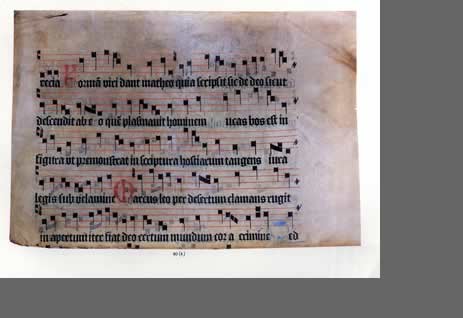 ecia Formā viri dant matheo quia scripsit sic de deo sicut
descendit ab e o quē plasmauit hominem ucas bos est in
figura ut premonstrat in scriptura hostiarum tangens iura
legis sub velamine Marcus leo per desertum clamans rugit
in apertum iter fiat deo certum mundum cor a crimine ed